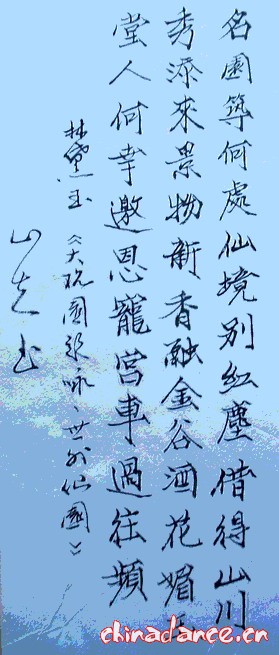 名園築何處仙境別紅塵借得山川
秀添來景物新香融金谷酒花媚玉
堂人何幸邀恩寵宮車過往頻
林黛玉《大观園题咏、世外仙園》
chinadance.cn